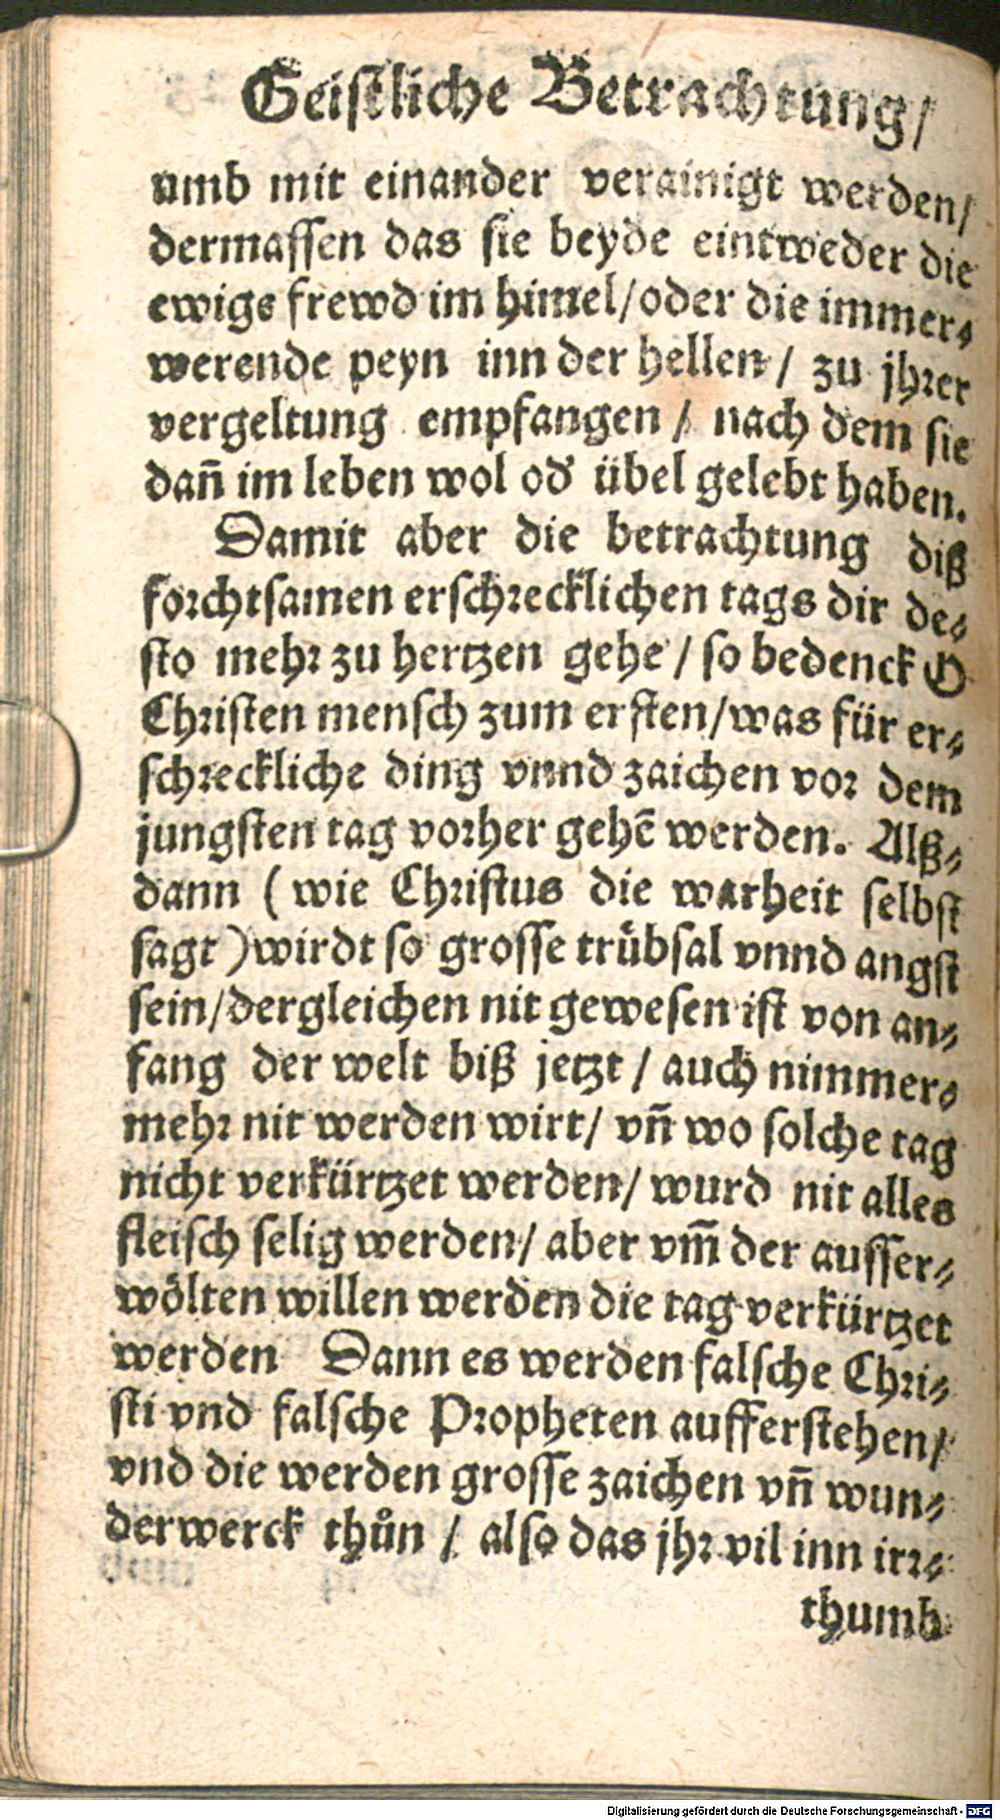 Geistliche Betrachtung/
umb mit einander verainigt werden/
dermassen das sie beyde eintweder die
ewige frewd im himel/oder die immer-
werende peyn inn der hellen / zu jhrer
vergeltung empfangen / nach dem sie
dañ im leben wol od' übel gelebt haben.
Damit aber die betrachtung diß
forchtsamen erschrecklichen tags dir de-
sto mehr zu hertzen gehe / so bedenck O
Christen mensch zum ersten/was für er-
schreckliche ding vnnd zaichen vor dem
jungsten tag vorher gehē werden. Alß-
dann (wie Christus die warheit selbst
sagt) wirdt so grosse trübsal vnnd angst
sein/dergleichen nit gewesen ist von an-
fang der welt biß jetzt / auch nimmer-
mehr nit werden wirt/ vñ wo solche tag
nicht verkürtzet werden/ wurd nit alles
fleisch selig werden/ aber vm̄ der ausser-
wölten willen werden die tag verkürtzet
werden Dann es werden falsche Chri-
sti vnd falsche Propheten aufferstehen/
vnd die werden grosse zaichen vñ wun-
derwerck thůn / also das jhr vil inn irr-
thumb
Digitalisierung gefördert durch die Deutsche Forschungsgemeinschaft - DFG